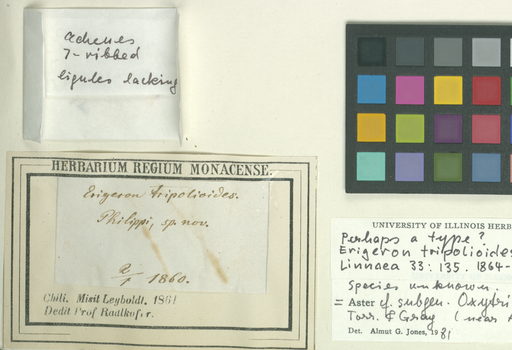 achenes
7-ribbed
ligules lacking
HERBARIUM REGIUM MONACENSE.
Erigeron tripolioides.
Philippi, sp. nov.
1860.
Chili. Misit Leyboldt. 1861
Dedit Prof Radlkofer.
UNIVERSITY OF ILLINOIS HERB
Perhaps a type?
Erigeron tripolioides
Linnaea 33: 135. 1864-
Species unknown.
= Aster cf. subgen. Oxytri
Torr. & Gray (near A
Det. Almut G. Jones, 1981